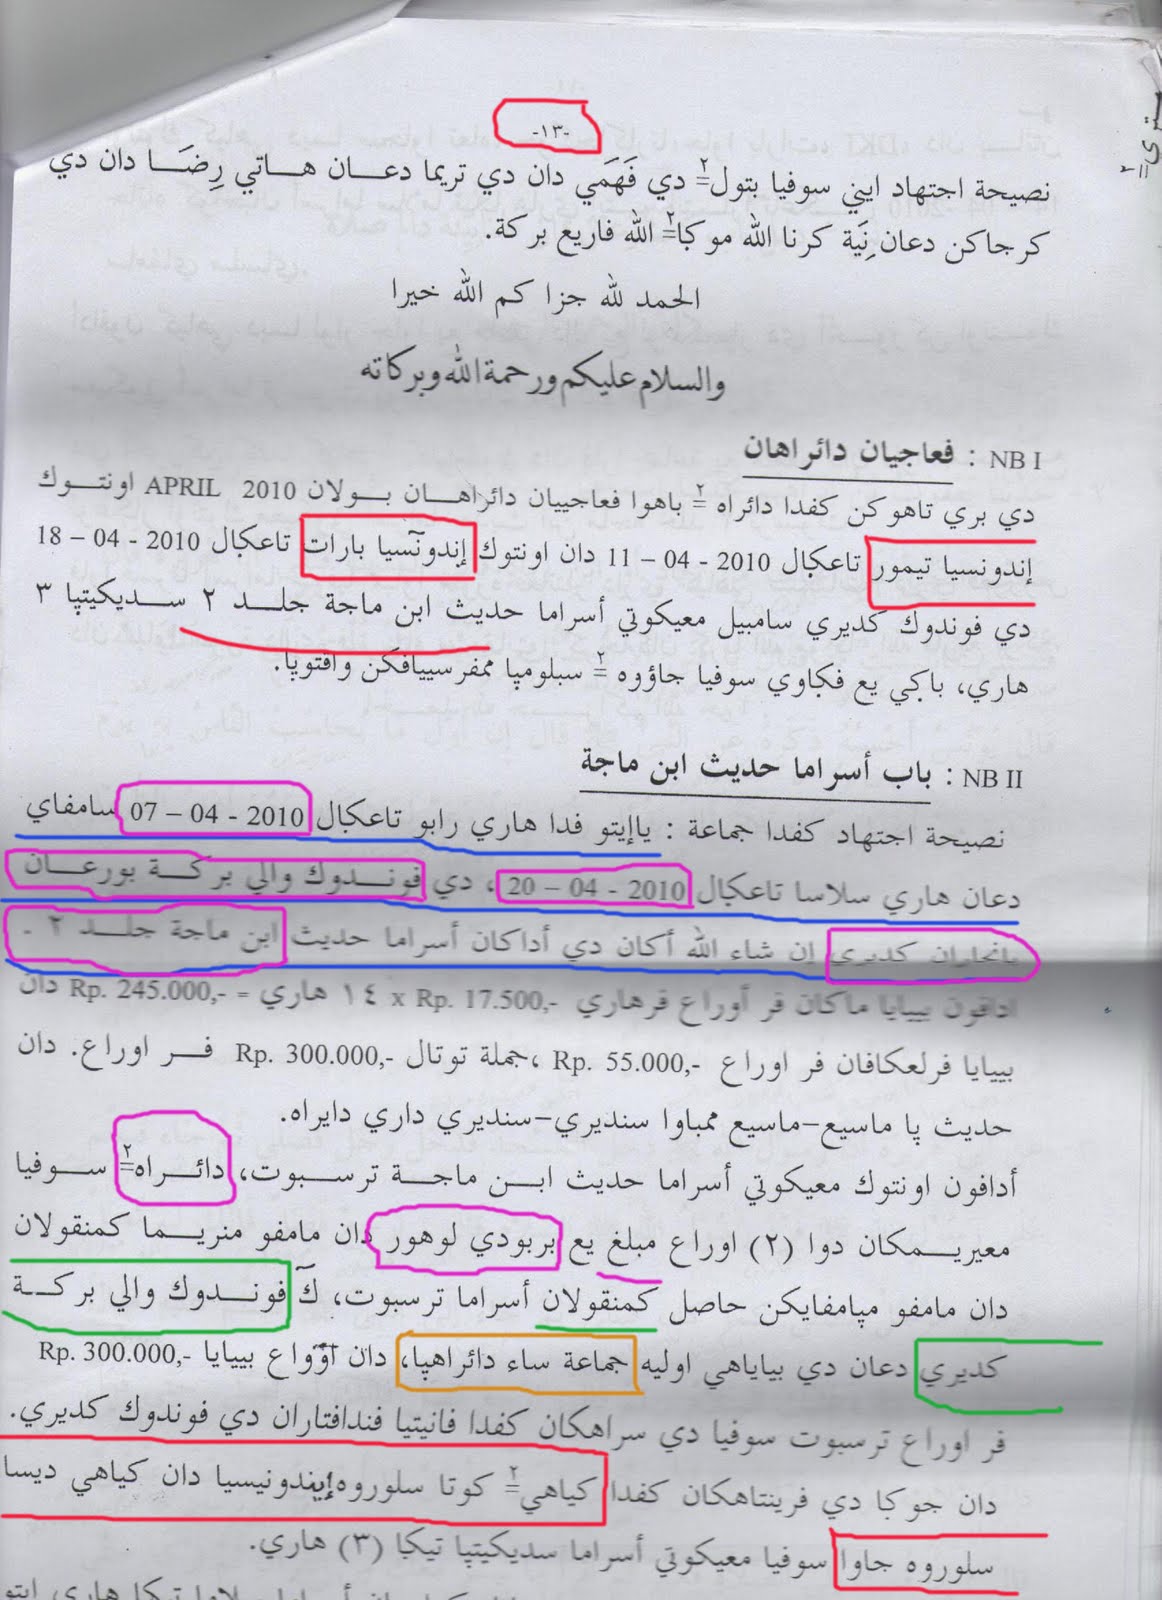 -١٣-
نصيحة اجتهاد ايني سوفيا بتول٢= دي فَهَمَي دان دي تريما دعان هاتي رِضَا دان دي
كرجاكن دعان نِيَة كرنا الله موكا٢= الله فاريع بركة.
الحمد لله جزا كم الله خيرا
والسلام عليكم ورحمة الله وبركاته
NB I : فعاجيان دائراهان
دي بري تاهوكن كفدا دائراه ٢= باهوا فعاجييان دائراهان بولان APRIL 2010 اونتوك
إندونسيا تيمور تاعكال 11 – 04 - 2010 دان اونتوك إندونسيا بارات تاعكال 18 – 04 - 2010
دي فوندوك كديري سامبيل معيكوتي أسراما حديث ابن ماجة جلد ٢ سديكيتپا ٣
هاري، باكي يع فكاوي سوفيا جاؤوه ٢= سبلومپا ممفرسييافكن واقتوپا.
NB II : باب أسراما حديث ابن ماجة
نصيحة اجتهاد كفدا جماعة : ياإيتو فدا هاري رابو تاعكال 07 – 04 - 2010 سامفاي
دعان هاري سلاسا تاعكال 20 – 04 - 2010 ، دي فوندوك والي بركة بورعان
بانجاران كديري إن شاء الله أكان دي أداكان أسراما حديث ابن ماجة جلد ٢ .
ادافون بييايا ماكان فر أوراع فرهاري Rp. 17.500,- x ١٤ هاري = Rp. 245.000,- دان
بييايا فرلعكافان فر اوراع Rp. 55.000,- ،جملة توتال Rp. 300.000,- فر اوراع. دان
حديث پا ماسيع-ماسيع ممباوا سنديري-سنديري داري دايراه.
أدافون اونتوك معيكوتي أسراما حديث ابن ماجة ترسبوت، دائراه٢= سوفيا
معيريمكان دوا (٢) اوراع مبلغ يع بربودي لوهور دان مامفو منريما كمنقولان
دان مامفو مپامفايكن حاصل كمنقولان أسراما ترسبوت، ك فوندوك والي بركة
كديري دعان دي بياياهي اوليه جماعة ساء دائراهپا، دان بييايا Rp. 300.000,-
فر اوراع ترسبوت سوفيا دي سراهكان كفدا فانيتيا فندافتاران دي فوندوك كديري.
دان جوكا دي فرينتاهكان كفدا كياهي٢= كوتا سلوروه إيندونيسيا دان كياهي ديسا
سلوروه جاوا سوفيا معيكوتي أسراما سديكيتپا تيكا (٣) هاري.